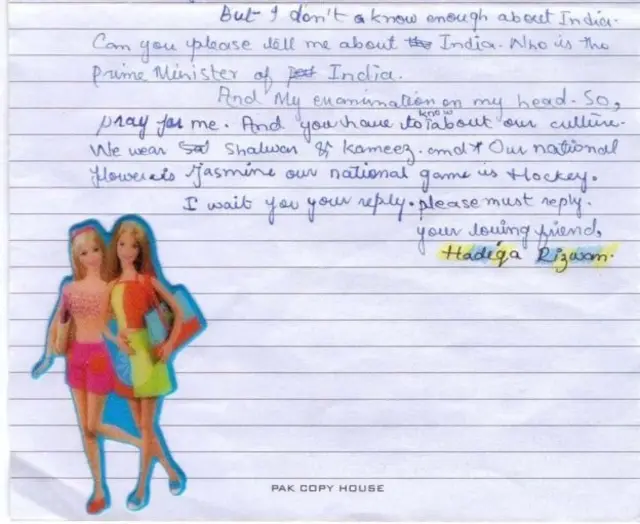 But I don't know enough about India.
Can you please tell me about the India. Who is the
Prime Minister of India.
And My examination on my head. So,
pray for me. And you have to know about our culture.
We wear Shalwar & Kameez. and Our national
flower is Jasmine our national game is Hockey.
I wait you your reply. please must reply.
your loving friend,
Hadiqa Rizwan.
PAK COPY HOUSE